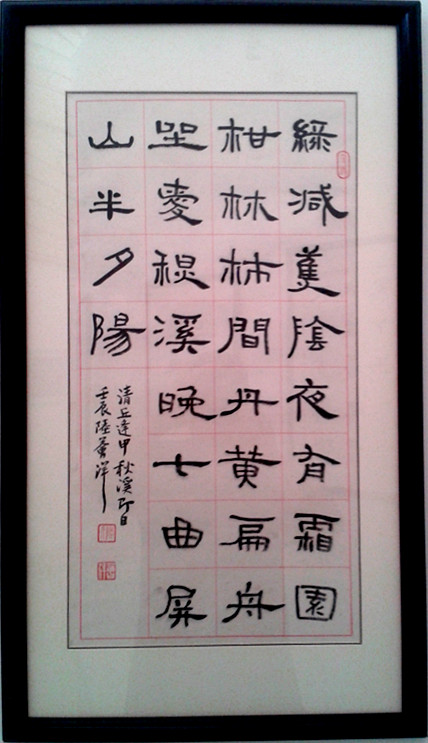 綠減蕉陰夜有霜園
柑林柿間丹黃扁舟
坐愛楓溪晚七曲屏
山半夕陽
清丘逢甲秋溪即目
壬辰陸